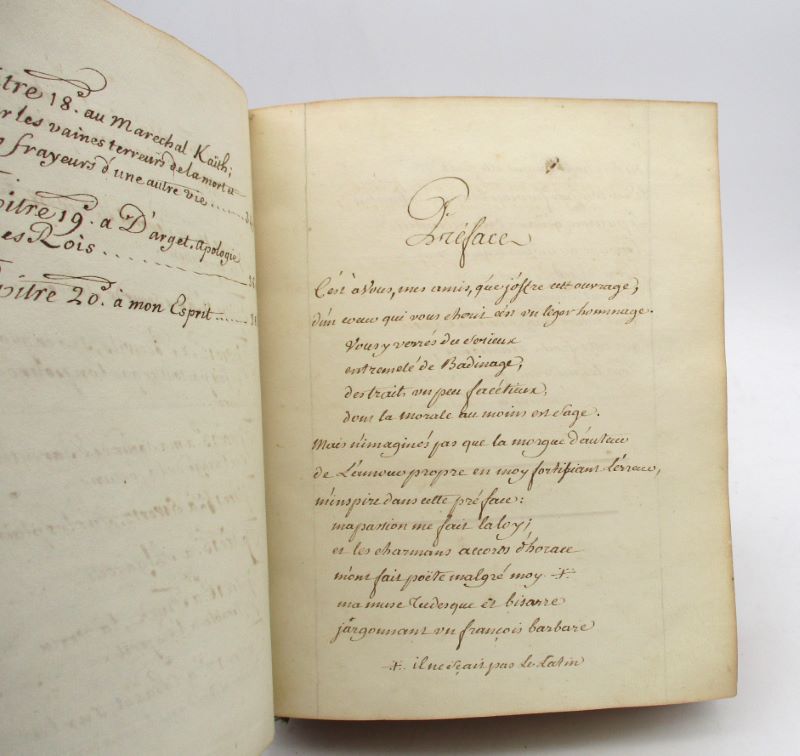 itre 18.e au Marechal Kaith;
r les vaines terreurs de la mort et
frayeurs d'une autre vie .......
itre 19.e a D'arget. apologie
es Rois ..........
itre 20.e à mon Esprit ......
Préface
C'est à Vous, mes amis, que j'offre cest ouvrage,
d'un coeur qui vous cherit c'en vn léger hommage.
Vous y verrés du serieux
entremelé de Badinage,
des traits vn peu facétieux,
dont la morale au moins est sage.
Mais n'imaginés pas que la morgue d'auteur
de L'amour propre en moy fortifiant l'erreur,
m'inspire dans cette préface:
ma passion me fait la loy;
et les charmans accords d'horace
m'ont fait poëte malgré moy ·+·
ma muse Tudesque et bisarre
jargonnant vn françois barbare
·+· il ne sçait pas le Latin